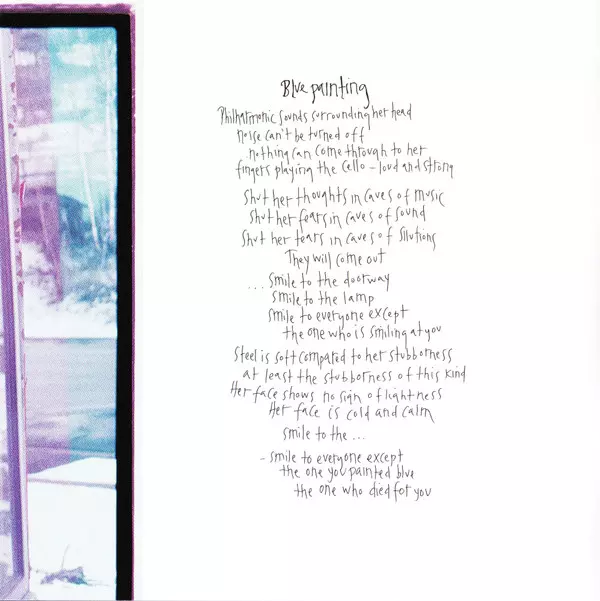 Blue painting
Philharmonic sounds surrounding her head
noise can't be turned off
nothing can come through to her
fingers playing the cello – loud and strong
Shut her thoughts in caves of music
shut her fears in caves of sound
Shut her tears in caves of sllutions
They will come out
... smile to the doorway
smile to the lamp
smile to everyone except
the one who is smiling at you
Steel is soft compared to her stubborness
at least the stubborness of this kind
Her face shows no sign of lightness
Her face is cold and calm
smile to the ...
- smile to everyone except
the one you painted blue
the one who died for you